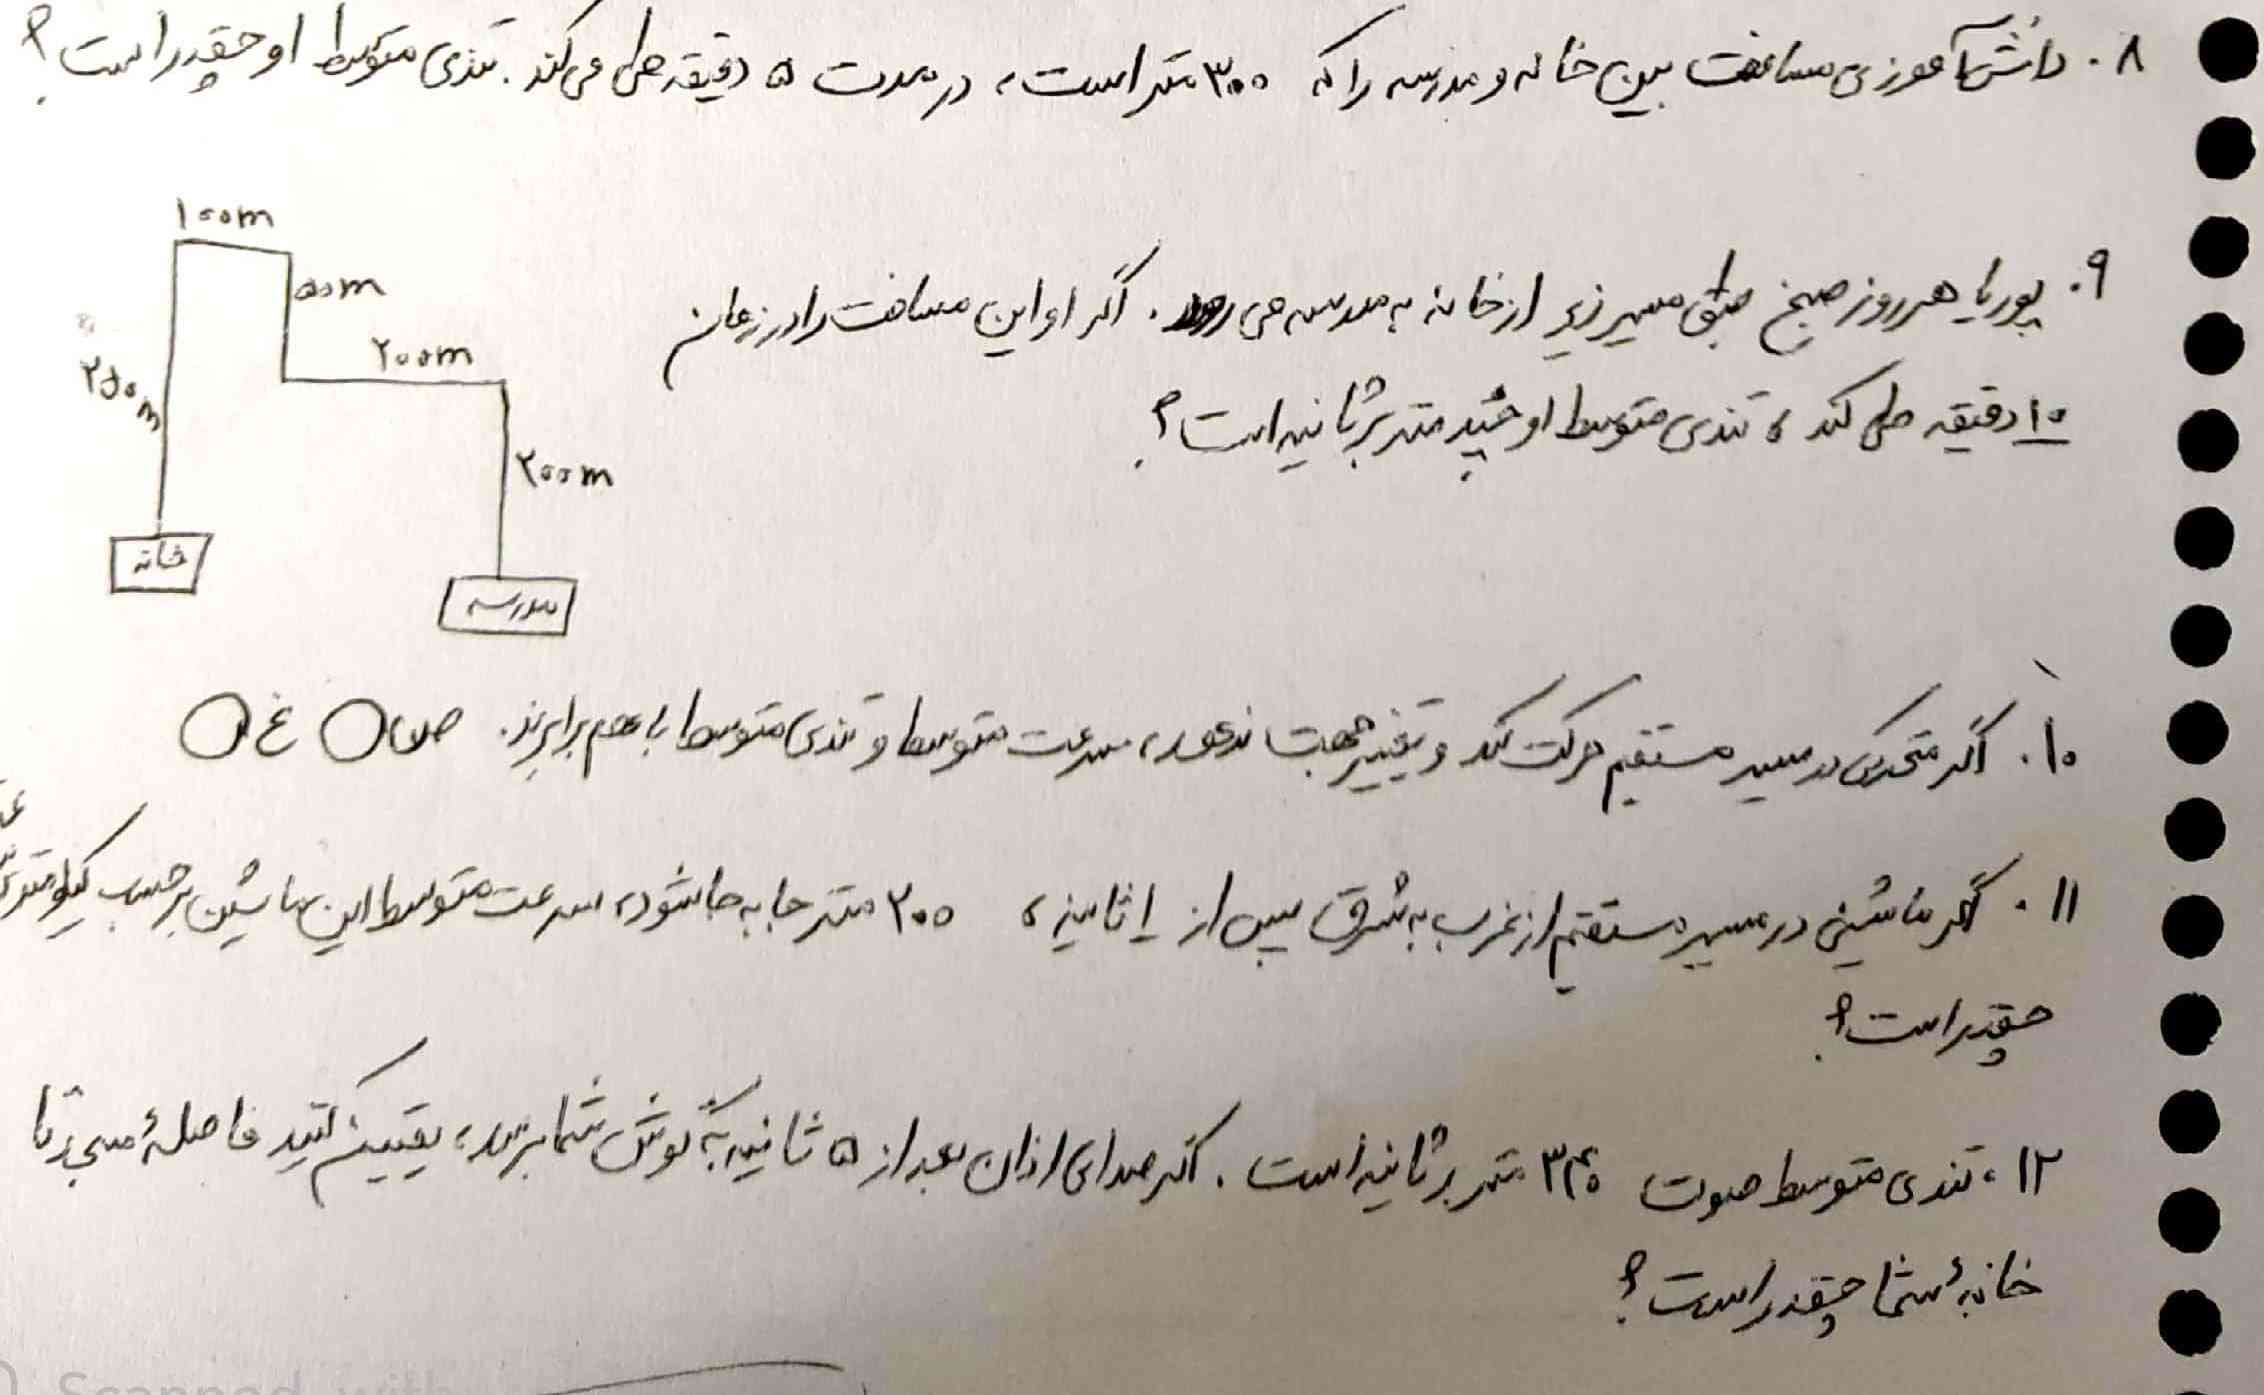 ۸. دانش‌آموزی مسافت بین خانه و مدرسه را که ۳۰۰ متر است، در مدت ۵ دقیقه طی می‌کند. تندی متوسط او چقدر است؟
۹. پوریا هر روز صبح طبق مسیر زیر از خانه به مدرسه می رود. اگر او این مسافت را در زمان
۱۰ دقیقه طی کند، تندی متوسط او چند متر بر ثانیه است؟
۱۰۰m
۵۰m
۲۰۰m
۲۵۰m
۲۰۰m
خانه
مدرسه
۱۰. اگر متحرکی در مسیر مستقیم حرکت کند و تغییر جهت ندهد، سرعت متوسط و تندی متوسط با هم برابرند. ص ○ غ ○
۱۱. اگر ماشینی در مسیر مستقیم از غرب به شرق پس از ثانیه، ۲۰۰ متر جا به جا شود، سرعت متوسط این ماشین بر حسب کیلومتر
چقدر است؟
۱۲. تندی متوسط صوت ۳۴۰ متر بر ثانیه است. اگر صدای اذان بعد از ۵ ثانیه به گوش شما برسد، تعیین کنید فاصلهٔ مسجد تا
خانهٔ شما چقدر است؟
Scanned with